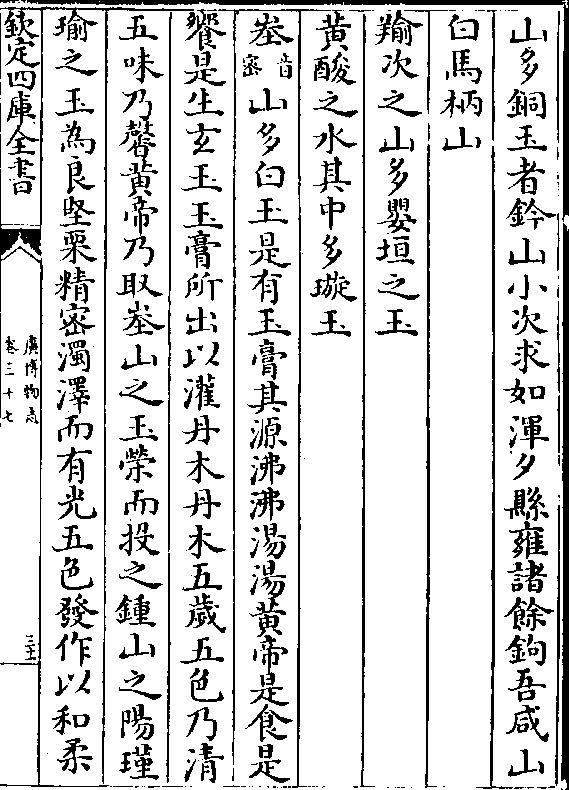 山多銅玉者鈐山小次求如渾夕縣雍諸餘鉤吾咸山
白馬柄山
羭次之山多嬰垣之玉
黃酸之水其中多璇玉
峚音宻山多白玉是有玉膏其源沸沸湯湯黃帝是食是
饗是生玄玉玉膏所出以灌丹木丹木五歲五色乃清
五味乃馨黃帝乃取峚山之玉榮而投之鍾山之陽瑾
瑜之玉為良堅栗精宻濁澤而有光五色發作以和柔
欽定四庫全書
廣博物志
卷三十七